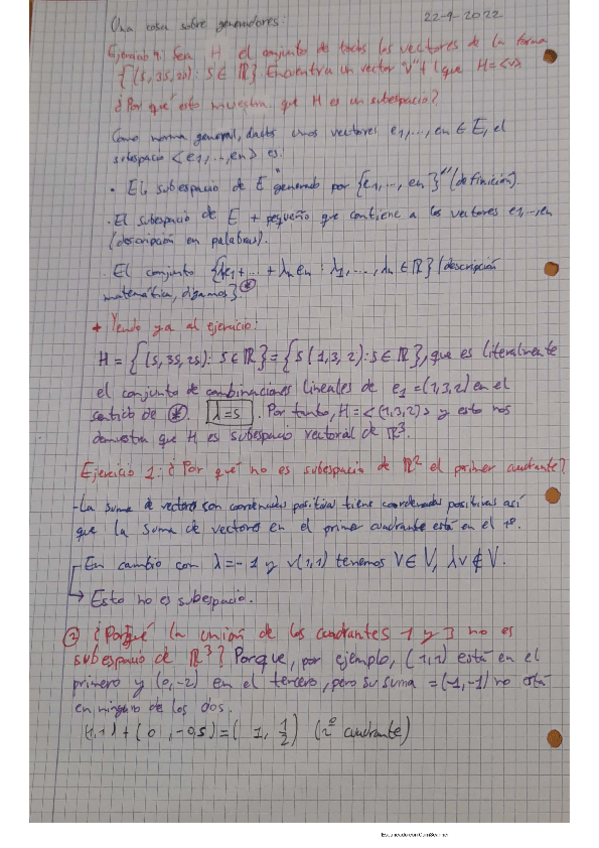 Una cosa sobre generadores: 22-9-2022
Ejercicio 4: Sea H el conjunto de todos los vectores de la forma
{(s, 3s, 2s) : s ∈ ℝ}. Encuentra un vector v ∈ tal que H = <v>
¿Por qué esto muestra que H es un subespacio?
Como norma general, dados unos vectores e1, ..., en ∈ E, el
subespacio <e1, ..., en> es:
· El "subespacio de E generado por {e1, ..., en}" (definición).
· El subespacio de E + pequeño que contiene a los vectores e1, ..., en
(descripción en palabras).
· El conjunto {λe1 + ... + λn en : λ1, ..., λn ∈ ℝ} (descripción
matemática, digamos). ⊛
* Yendo ya al ejercicio:
H = {(s, 3s, 2s) : s ∈ ℝ} = {s(1, 3, 2) : s ∈ ℝ}, que es literalmente
el conjunto de combinaciones lineales de e1 = (1,3,2) en el
sentido de ⊛. λ=s. Por tanto, H = <(1,3,2)> y esto nos
demuestra que H es subespacio vectorial de ℝ³.
Ejercicio 1: ¿Por qué no es subespacio de ℝ² el primer cuadrante?
- La suma de vectores con coordenadas positivas tiene coordenadas positivas así
que la suma de vectores en el primer cuadrante está en el 1º.
- En cambio con λ = -1 y v(1,1) tenemos v ∈ V, λv ∉ V.
→ Esto no es subespacio.
② ¿Porqué la unión de los cuadrantes 1 y 3 no es
subespacio de ℝ³? Porque, por ejemplo, (1,1) está en el
primero y (0,-2) en el tercero, pero su suma = (-1,-1) no está
en ninguno de los dos.
(1,1) + (0, -0,5) = (1, 1/2) (2º cuadrante)
Escaneado con CamScanner